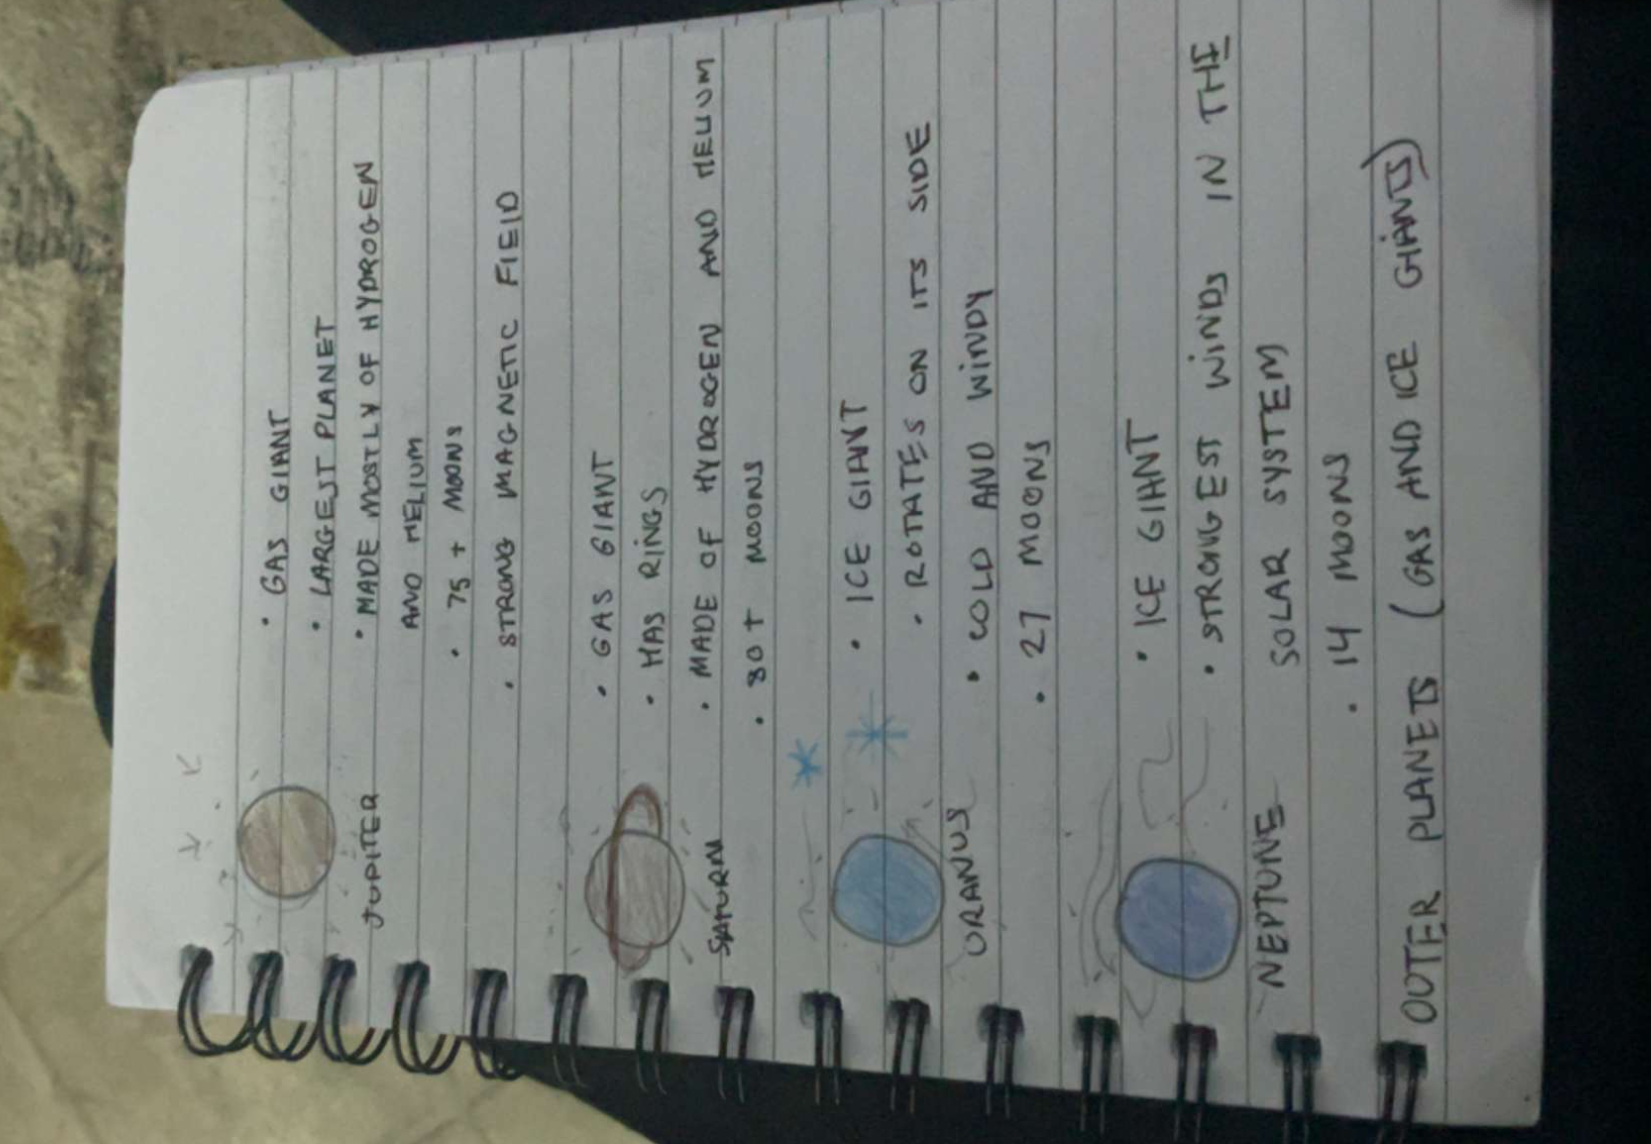 • GAS GIANT
• LARGEST PLANET
• MADE MOSTLY OF HYDROGEN
AND HELIUM
• 75 + MOONS
• STRONG MAGNETIC FIELD
JUPITER
• GAS GIANT
• HAS RINGS
• MADE OF HYDROGEN AND HELIUM
• 80 + MOONS
SATURN
• ICE GIANT
• ROTATES ON ITS SIDE
• COLD AND WINDY
• 27 MOONS
URANUS
• ICE GIANT
• STRONGEST WINDS IN THE
SOLAR SYSTEM
• 14 MOONS
NEPTUNE
OUTER PLANETS (GAS AND ICE GIANTS)